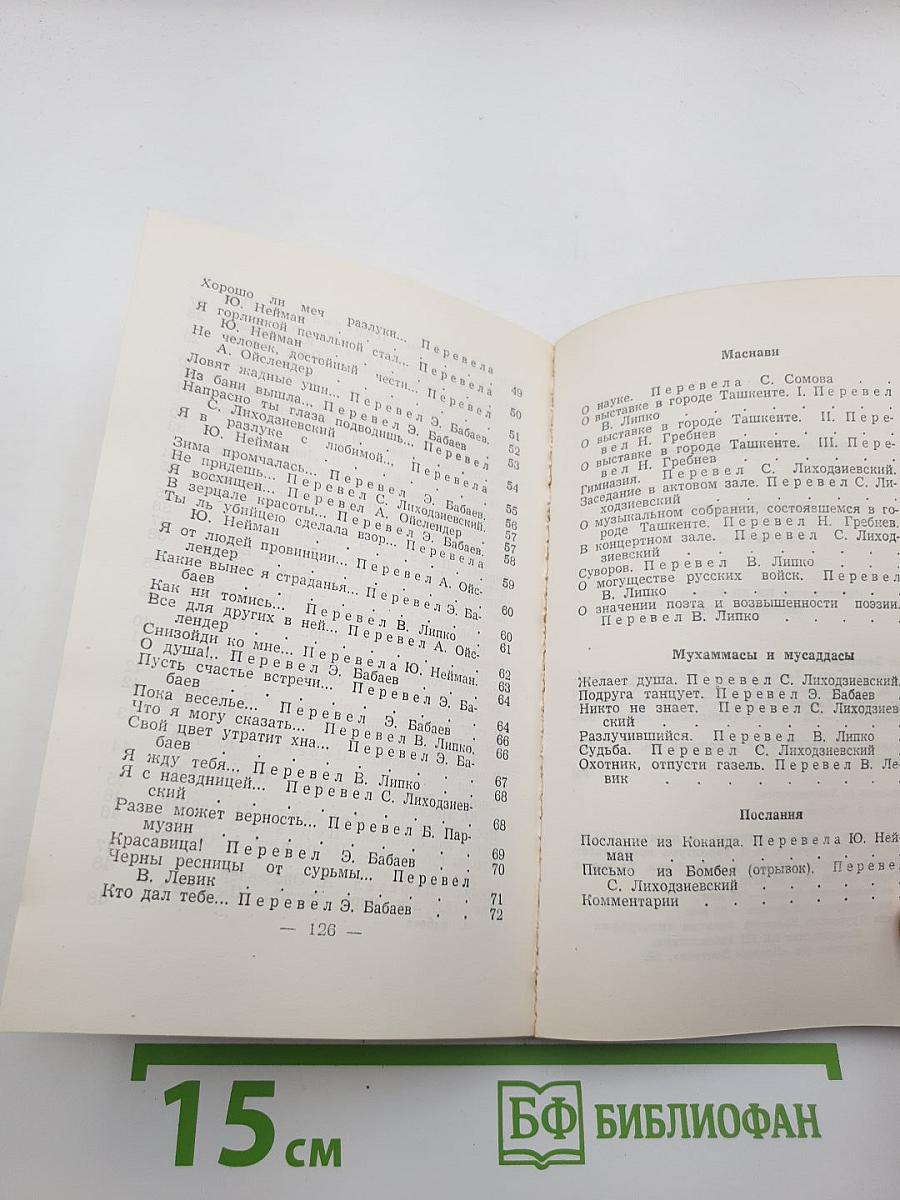 Хорошо ли меч разлуки... Перевела
Ю. Нейман . . . . . . 49
Я горлинкой печальной стал... Перевела
Ю. Нейман . . . . . . 50
Не человек, достойный чести... Перевел
А. Ойслендер . . . . . . 51
Ловят жадные уши... Перевел Э. Бабаев. 52
Из бани вышла... Перевел Э. Бабаев . 53
Напрасно ты глаза подводишь... Перевел
С. Лиходзиевский . . . . . 54
Я в разлуке с любимой... Перевела
Ю. Нейман . . . . . . 55
Зима промчалась... Перевел Э. Бабаев. 56
Не придешь... Перевел С. Лиходзиевский. 57
Я восхищен... Перевел А. Ойслендер . 57
В зерцале красоты... Перевел Э. Бабаев. 58
Ты ль убийцею сделала взор... Перевела
Ю. Нейман . . . . . . 59
Я от людей провинции... Перевел А. Ойс-
лендер . . . . . . . 60
Какие вынес я страданья... Перевел Э. Ба-
баев . . . . . . . 60
Как ни томись... Перевел В. Липко . 61
Все для других в ней... Перевел А. Ойс-
лендер . . . . . . . 62
Снизойди ко мне... Перевела Ю. Нейман. 63
О душа!.. Перевел Э. Бабаев . . . 64
Пусть счастье встречи... Перевел Э. Ба-
баев . . . . . . . 64
Пока веселье... Перевел Э. Бабаев . . 66
Что я могу сказать... Перевел В. Липко. 66
Свой цвет утратит хна... Перевел Э. Ба-
баев . . . . . . . 67
Я жду тебя... Перевел В. Липко . . 68
Я с наездницей... Перевел С. Лиходзиев-
ский . . . . . . . 68
Разве может верность... Перевел Б. Пар-
музин . . . . . . . 69
Красавица! Перевел Э. Бабаев . . . 70
Черны ресницы от сурьмы... Перевел
В. Левик . . . . . . . 71
Кто дал тебе... Перевел Э. Бабаев . . 72
— 126 —
Маснави
О науке. Перевела С. Сомова . .
О выставке в городе Ташкенте. I. Перевел
В. Липко . . . . . . .
О выставке в городе Ташкенте. II. Пере-
вел Н. Гребнев . . . . .
О выставке в городе Ташкенте. III. Пере-
вел Н. Гребнев . . . . .
Гимназия. Перевел С. Лиходзиевский.
Заседание в актовом зале. Перевел С. Ли-
ходзиевский . . . . . .
О музыкальном собрании, состоявшемся в го-
роде Ташкенте. Перевел Н. Гребнев.
В концертном зале. Перевел С. Лиход-
зиевский . . . . . . .
Суворов. Перевел В. Липко . . .
О могуществе русских войск. Перевел
В. Липко . . . . . . .
О значении поэта и возвышенности поэзии.
Перевел В. Липко . . . . .
Мухаммасы и мусаддасы
Желает душа. Перевел С. Лиходзиевский.
Подруга танцует. Перевел Э. Бабаев .
Никто не знает. Перевел С. Лиходзиев-
ский . . . . . . .
Разлучившийся. Перевел В. Липко .
Судьба. Перевел С. Лиходзиевский .
Охотник, отпусти газель. Перевел В. Ле-
вик . . . . . . .
Послания
Послание из Коканда. Перевела Ю. Ней-
ман . . . . . . .
Письмо из Бомбея (отрывок). Переве
С. Лиходзиевский . . . . .
Комментарии . . . . . . .
15 см
БФ БИБЛИОФАН